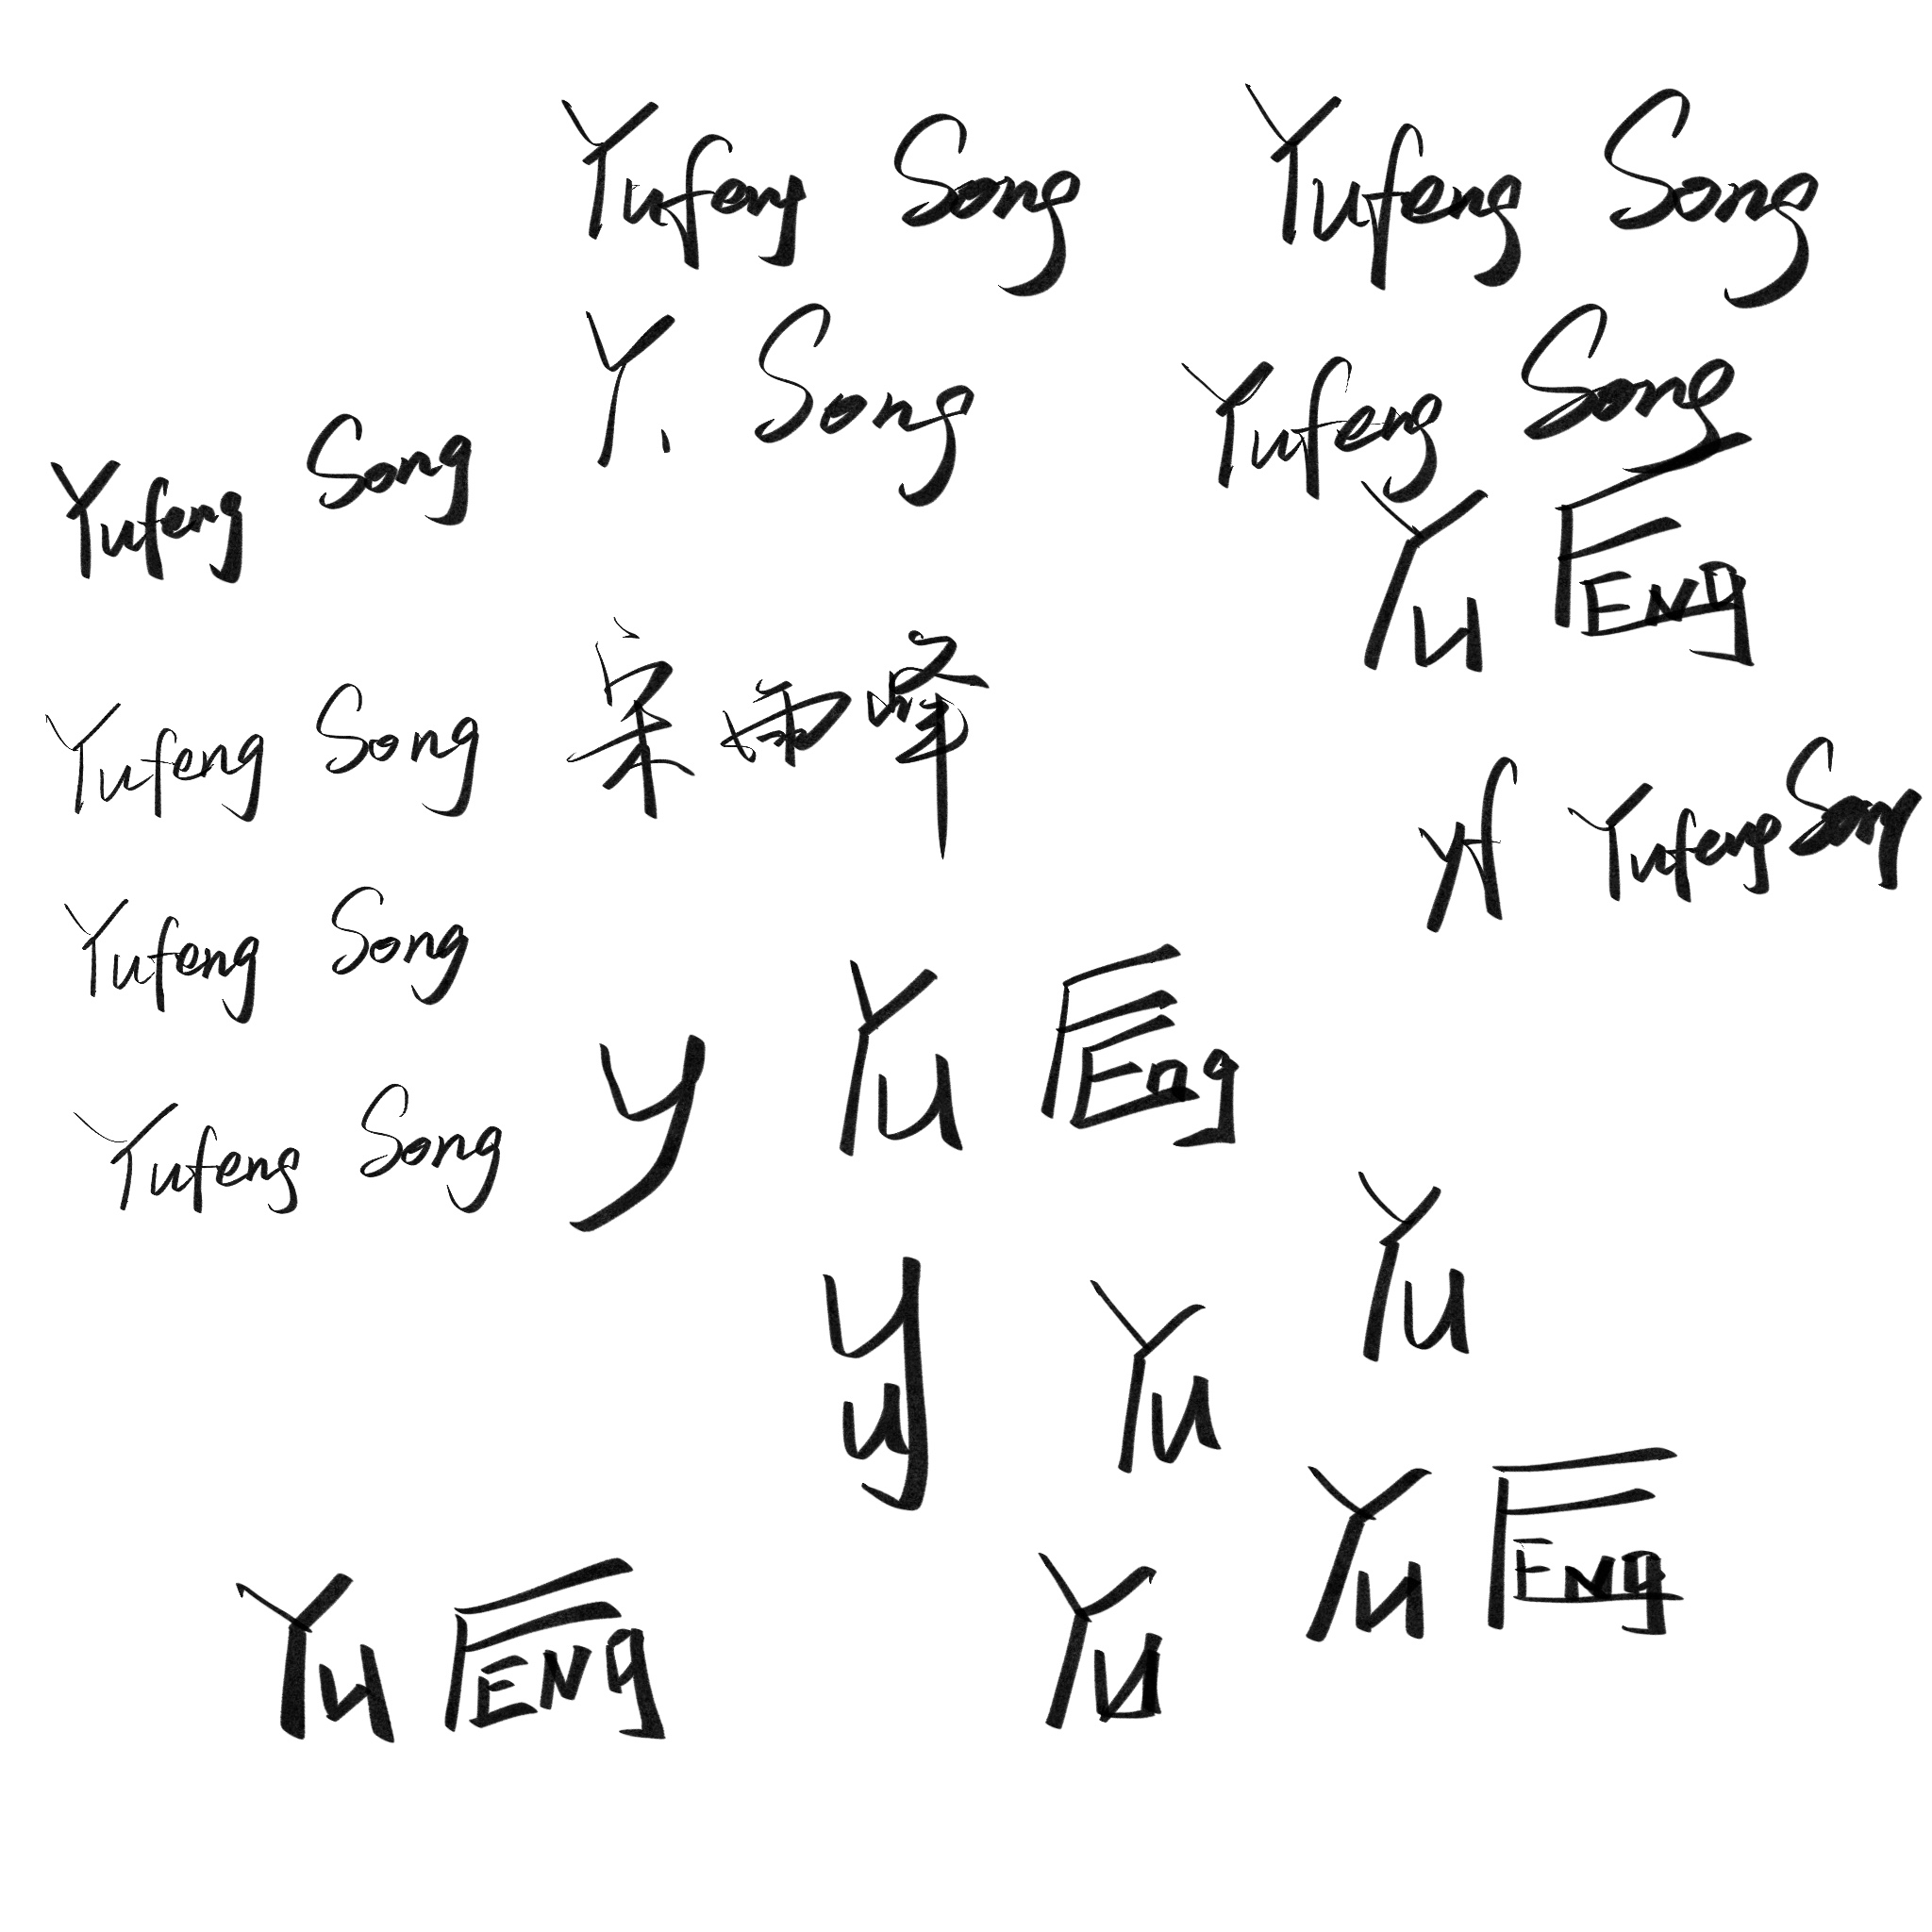 Yufeng Song
Yufeng Song
Y. Song
Yufeng Song
Yufeng Song
Yu FENg
宋雨峰
Yufeng Song
yf
Yufeng Song
Yufeng Song
Yu FEng
y
Yufeng Song
Yu
yu
Yu
Yu FENg
Yu FENg
Yu